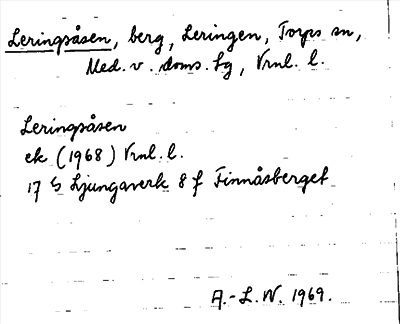 Leringsåsen, berg, Leringen, Torps sn,
Med. v. doms. hg, Vrnl. l.
Leringsåsen
ek (1968) Vrnl. l.
17 G Ljungaverk 8 f Finnåsberget
A.-L. N. 1969.